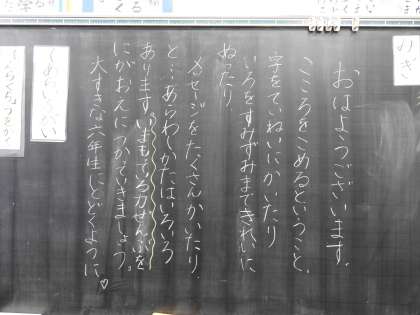 めあて
おはようございます。
こころをこめるということ、
字をていねいにかいたり
いろをすみずみまできれいに
ぬったり
メッセージをたくさんかいたり、
と…あらわしかたはいろいろ
あります。いまもっている力ぜんぶを
にがおえにつかっていきましょう。
大すきな六年生にとどくように♡